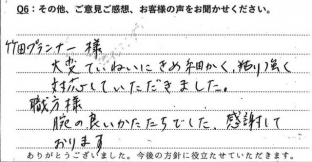 Q6：その他、ご意見ご感想、お客様の声をお聞かせください。
竹田プランナー様
大変ていねいにきめ細かく、粘り強く
対応していただきました。
職方様
腕の良いかたたちでした。感謝して
おります
ありがとうございました。今後の方針に役立たせていただきます。